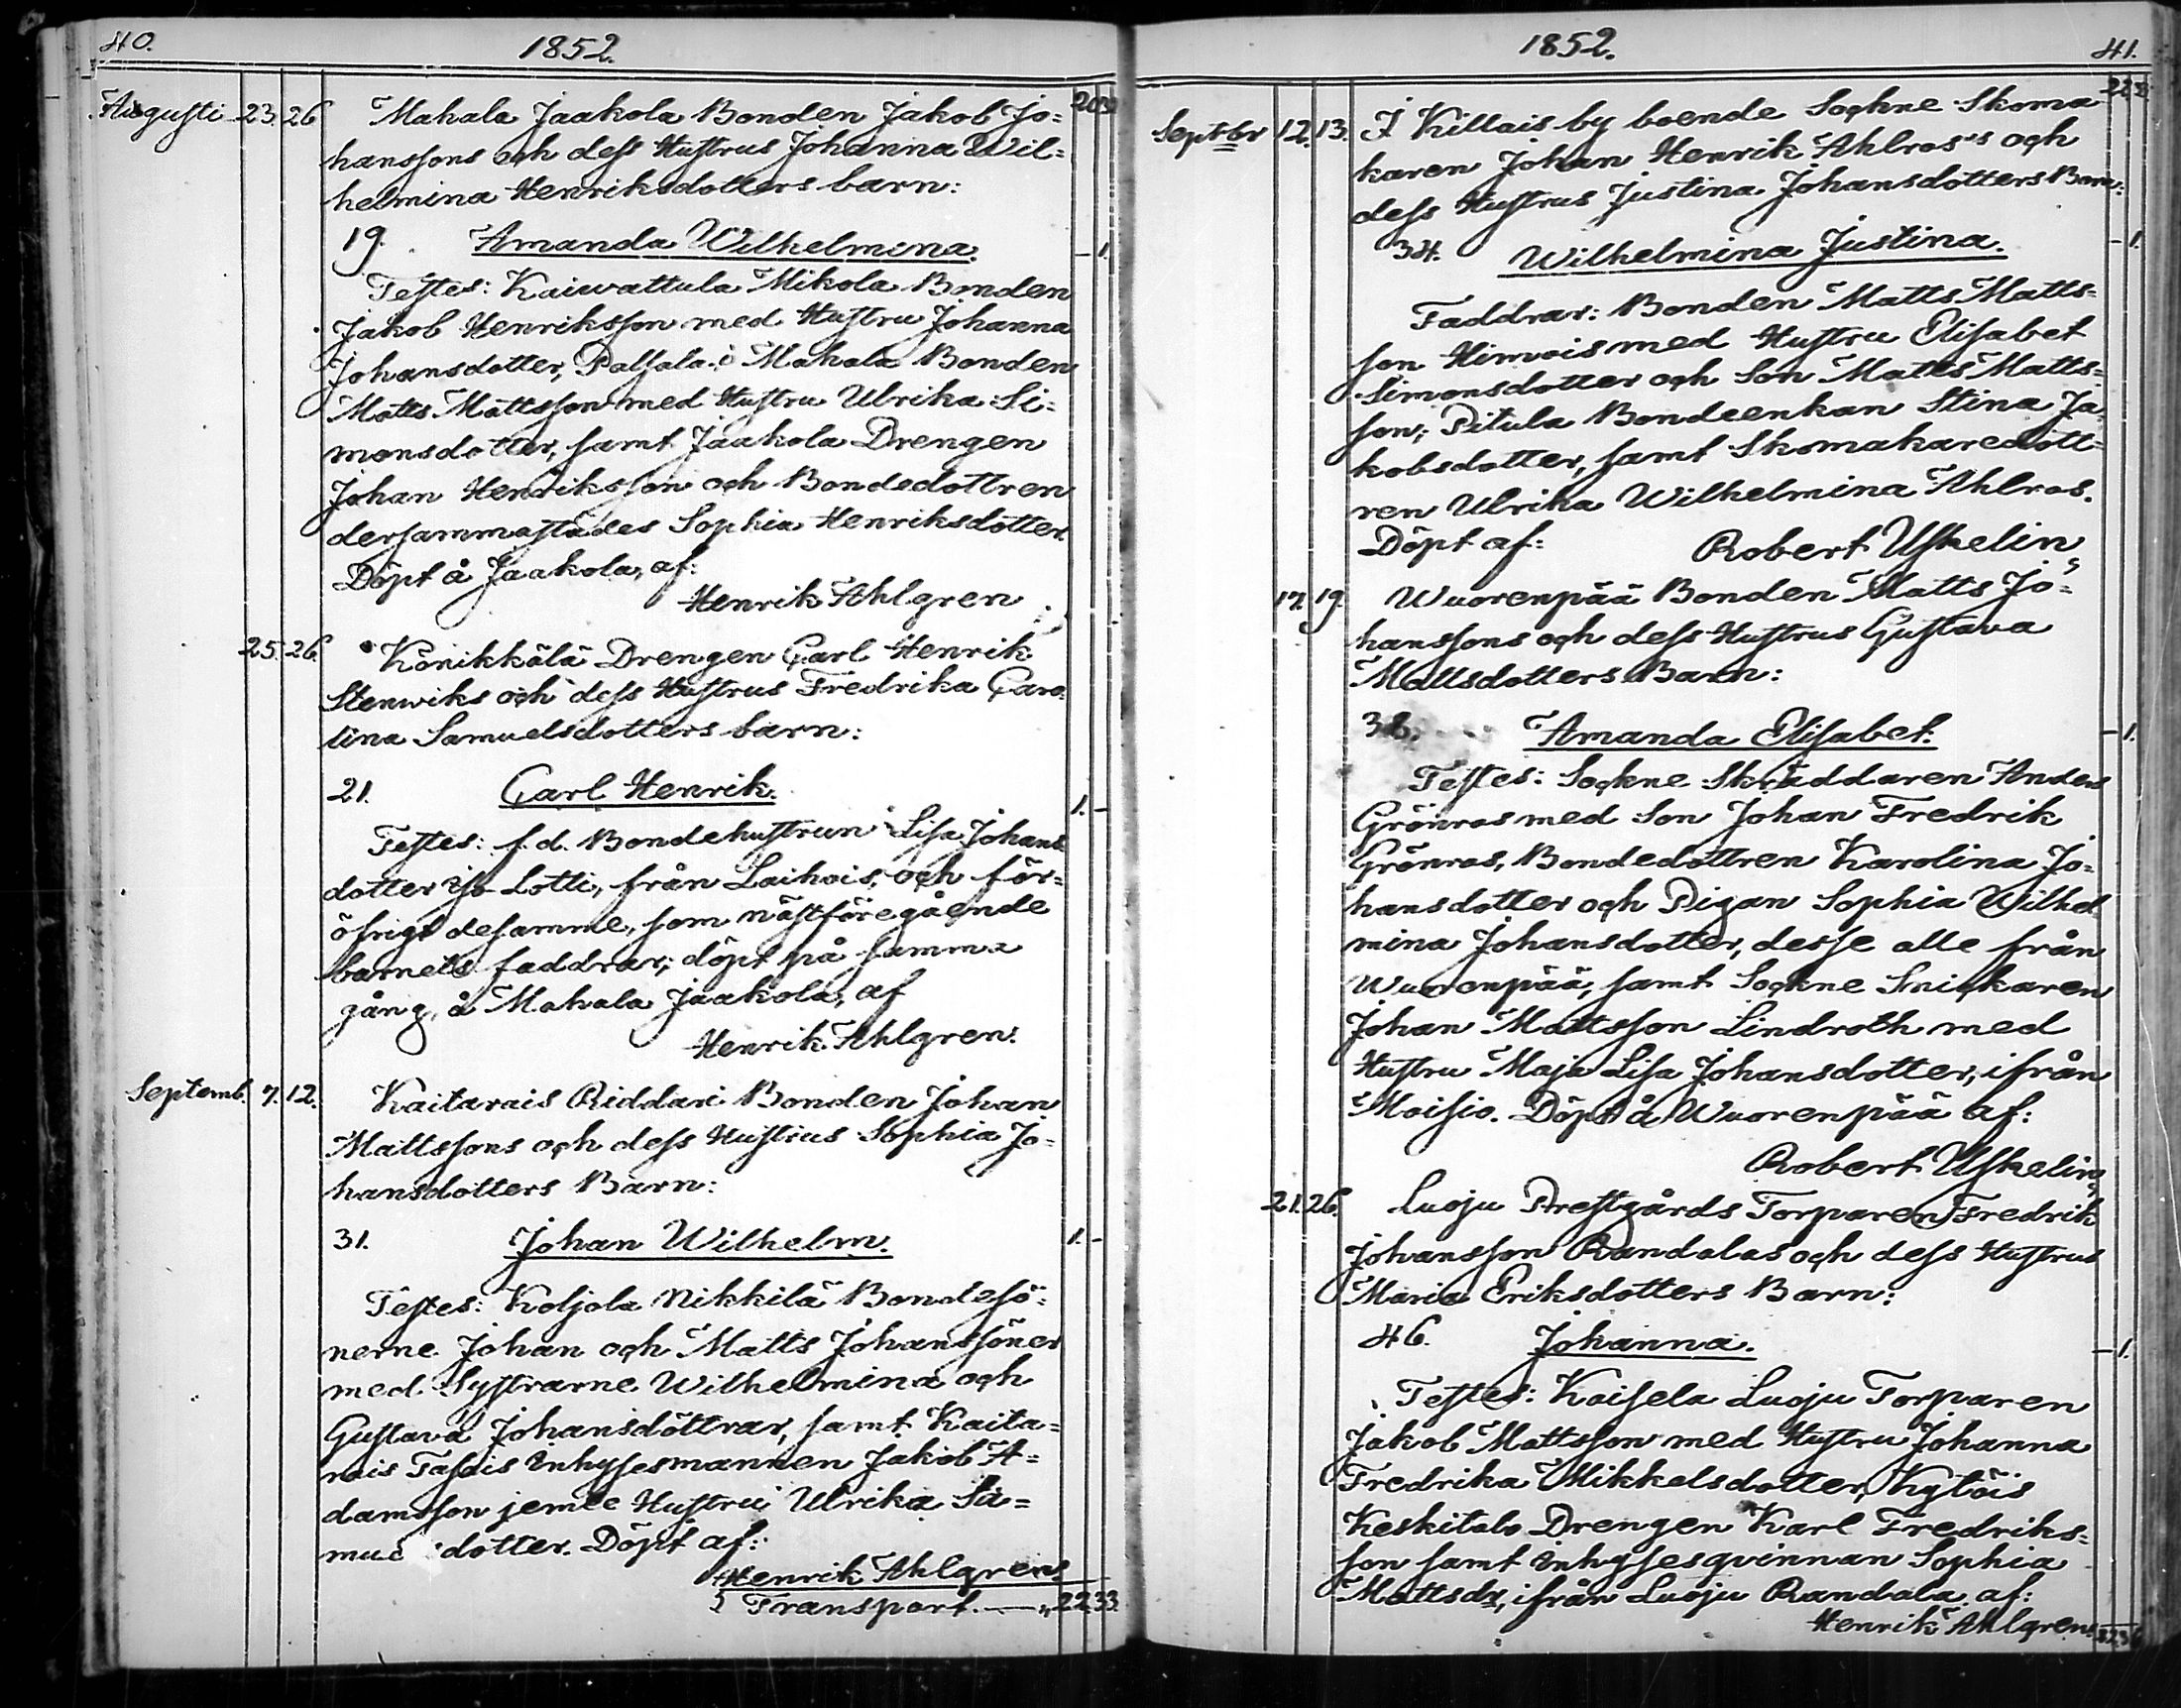 40.
1852.
Augusti 23. 26 Mahala Jaakola Bonden Jakob Jo= 20 32
hanssons och dess Hustrus Johanna Wil=
helmina Henriksdotters barn:
19. Amanda Wilhelmina. – 1.
Testes: Kaiwattula Mikola Bonden
Jakob Henriksson med Hustru Johanna
Johansdotter, Palsala o Mahala Bonden
Matts Mattsson med Hustru Ulrika Si=
monsdotter, samt Jaakola Drengen
Johan Henriksson och Bondedottren
dersammastädes Sophia Henriksdotter.
Döpt å Jaakola, af:
Henrik Ahlgren
25. 26. Könikkälä Drengen Carl Henrik
Stenwiks och dess Hustrus Fredrika Caro=
lina Samuelsdotters barn:
21. Carl Henrik. 1. –
Testes: f.d. Bondehustrun Lisa Johans
dotter Lotti, från Laihois, och för=
öfrigt desamme, som nästföregående
barnets faddrar; döpt på samma
gång, å Mahala Jaakola, af
Henrik Ahlgren.
Septemb. 7. 12. Kaitarais Riddari Bonden Johan
Mattssons och dess Hustrus Sophia Jo=
hansdotters Barn:
31. Johan Wilhelm. 1. –
Testes: Koljola Nikkilä Bondesö=
nerne Johan och Matts Johanssöner
med Systrarne Wilhelmina och
Gustava Johansdöttrar, samt Kaita=
rais Tasais Inhysesmannen Jakob A=
damsson jemte Hustru Ulrika Sa=
mue dotter. Döpt af:
Henrik Ahlgren.
Transport. — 22. 33.
1852.
41.
Septbr 12. 13. I Killais by boende Sockne Skoma
karen Johan Henrik Ahlros's och
dess Hustrus Justina Johansdotters Barn:
34. Wilhelmina Justina. – 1.
Faddrar: Bonden Matts Matts=
son Himois med Hustru Elisabet
Simonsdotter och Son Matts Matts=
son; Pitula Bondeenkan Stina Ja=
kobsdotter, samt Skomakaredott=
ren Ulrika Wilhelmina Ahlros.
Döpt af: Robert Uskelin
17. 19. Wuorenpää Bonden Matts Jo=
hanssons och dess Hustrus Gustava
Mattsdotters Barn:
38. Amanda Elisabet. – 1.
Testes: Sockne Skräddaren Anders
Grönros med Son Johan Fredrik
Grönros, Bondedottren Karolina Jo=
hansdotter och Pigan Sophia Wilhel
mina Johansdotter, desse alle från
Wuorenpää, samt Sockne Snickaren
Johan Mattsson Lindroth med
Hustru Maja Lisa Johansdotter, ifrån
Moisio. Döpt å Wuorenpää af:
Robert Uskelin
21. 26. Luoju Prestgårds Torparen Fredrik
Johansson Randalas och dess Hustrus
Maria Eriksdotters Barn:
46. Johanna. – 1.
Testes: Kaisela Luoju Torparen
Jakob Mattsson med Hustru Johanna
Fredrika Mikkelsdotter, Kytöis
Keskitalo Drengen Karl Fredriks=
son samt Inhysesqvinnan Sophia
Mattsdr, ifrån Luoju Randala, af:
Henrik Ahlgren.